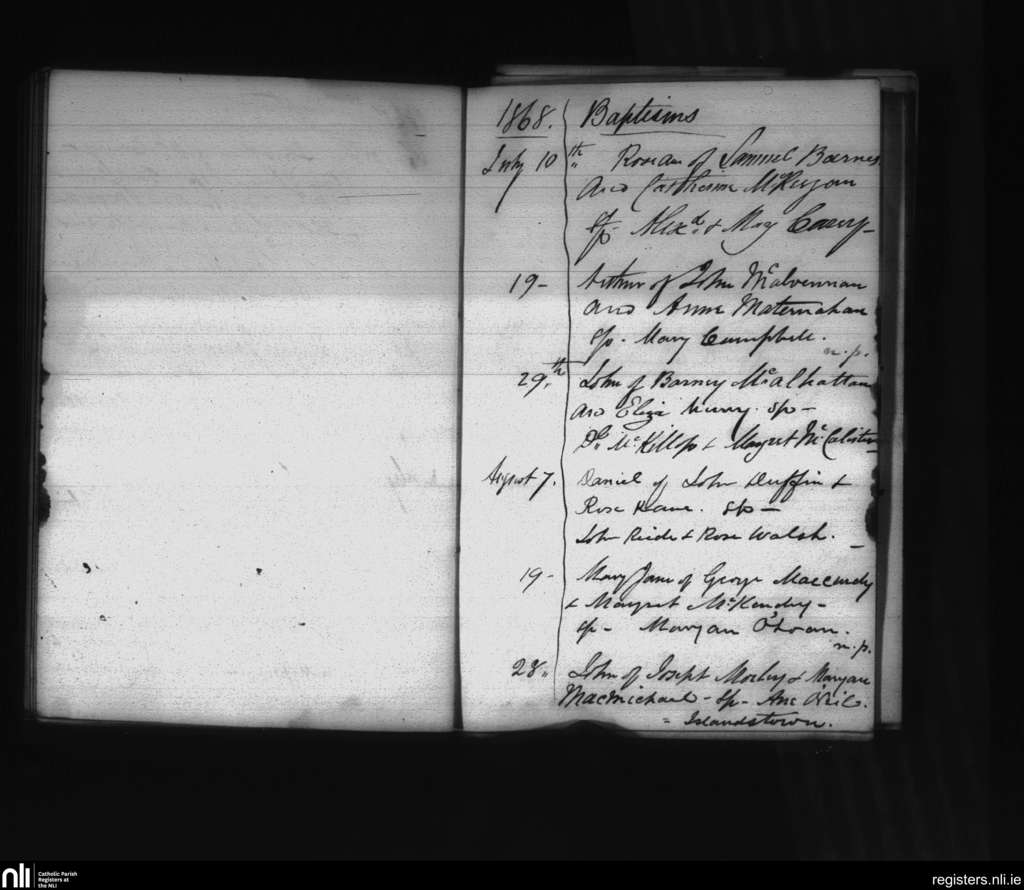 1868. Baptisms
July 10th Rosean of Samuel Barnes
and Catherine McKeegan
Sp. Alexd. & Mary Casey
19 - Arthur of John McAlvennan
and Anne Maternahan
Sp. Mary Campbell.
n.p.
29th John of Barney McalHattan
and Eliza sp -
Dl. McKillop & Margret McCalister
August 7. Daniel of John Duffin &
Rose Kane. Sp -
John Reide & Rose Walsh. -
19 - Mary Jane of George Maccurdy
& Margret McKendry -
sp - Maryan O'Loan.
n.p.
28. John of Joseph & Maryan
MacMichael - Sp - Ane O'Neil.
= Islandstown.
nli Catholic Parish
Registers at
the NLI
registers.nli.ie